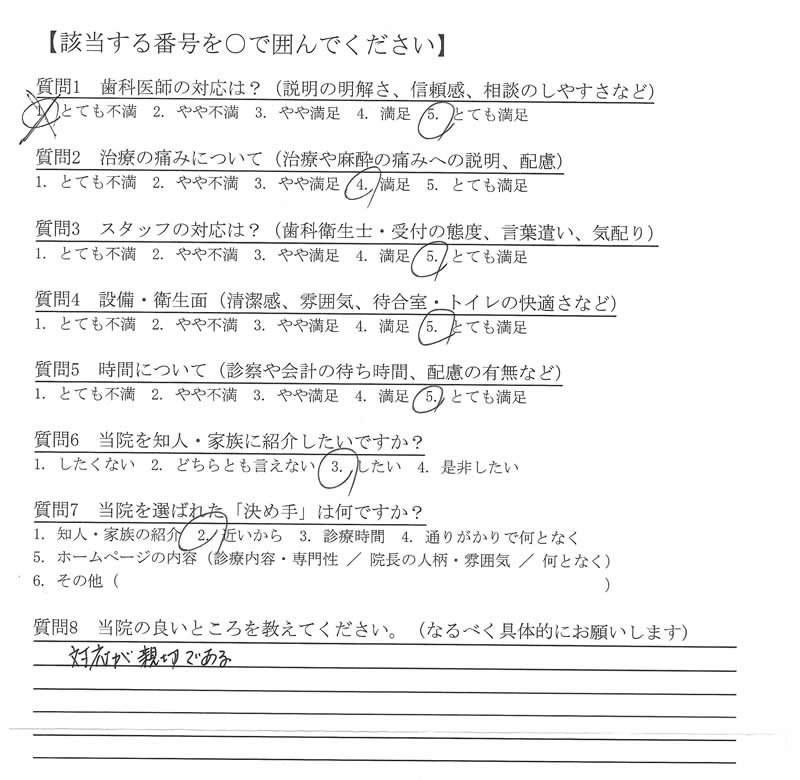 【該当する番号を○で囲んでください】
質問1 歯科医師の対応は？（説明の明解さ、信頼感、相談のしやすさなど）
1. とても不満 2. やや不満 3. やや満足 4. 満足 5. とても満足
質問2 治療の痛みについて（治療や麻酔の痛みへの説明、配慮）
1. とても不満 2. やや不満 3. やや満足 4. 満足 5. とても満足
質問3 スタッフの対応は？（歯科衛生士・受付の態度、言葉遣い、気配り）
1. とても不満 2. やや不満 3. やや満足 4. 満足 5. とても満足
質問4 設備・衛生面（清潔感、雰囲気、待合室・トイレの快適さなど）
1. とても不満 2. やや不満 3. やや満足 4. 満足 5. とても満足
質問5 時間について（診察や会計の待ち時間、配慮の有無など）
1. とても不満 2. やや不満 3. やや満足 4. 満足 5. とても満足
質問6 当院を知人・家族に紹介したいですか？
1. したくない 2. どちらとも言えない 3. したい 4. 是非したい
質問7 当院を選ばれた「決め手」は何ですか？
1. 知人・家族の紹介 2. 近いから 3. 診療時間 4. 通りがかりで何となく
5. ホームページの内容（診療内容・専門性 ／ 院長の人柄・雰囲気 ／ 何となく）
6. その他（ ）
質問8 当院の良いところを教えてください。（なるべく具体的にお願いします）
対応が親切である